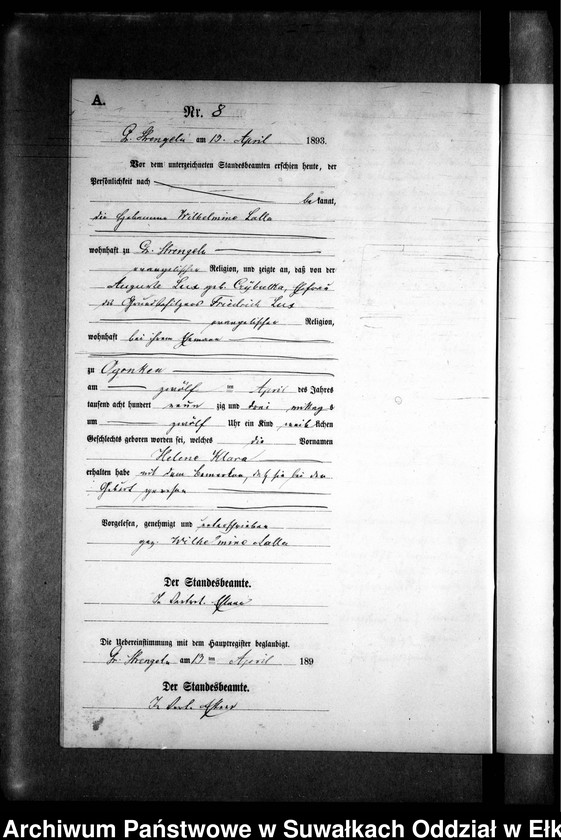 A.
Nr. 8
Gr. Strengeln am 13. April 1893.
Vor dem unterzeichneten Standesbeamten erschien heute, der
Persönlichkeit nach
bekannt,
die Hebamme Wilhelmine Lalla
wohnhaft zu Gr. Strengeln
evangelischer Religion, und zeigte an, daß von der
Auguste Lux geb. Czybulka, Ehefrau
des Grundbesitzers Friedrich Lux
evangelischer Religion,
wohnhaft bei ihrem Ehemann
zu Ogonken
am zwölften April des Jahres
tausend acht hundert neunzig und drei mittags
um zwölf Uhr ein Kind weiblichen
Geschlechts geboren worden sei, welches die Vornamen
Helene Klara
erhalten habe mit dem Bemerken, daß sie bei der
Geburt zugegen gewesen
Vorgelesen, genehmigt und unterschrieben
gez. Wilhelmine Lalla
Der Standesbeamte.
In Vertret.
Die Uebereinstimmung mit dem Hauptregister beglaubigt.
Gr. Strengeln am 13 ten April 189
Der Standesbeamte.
In Vert.
Archiwum Państwowe w Suwałkach Oddział w Ełk